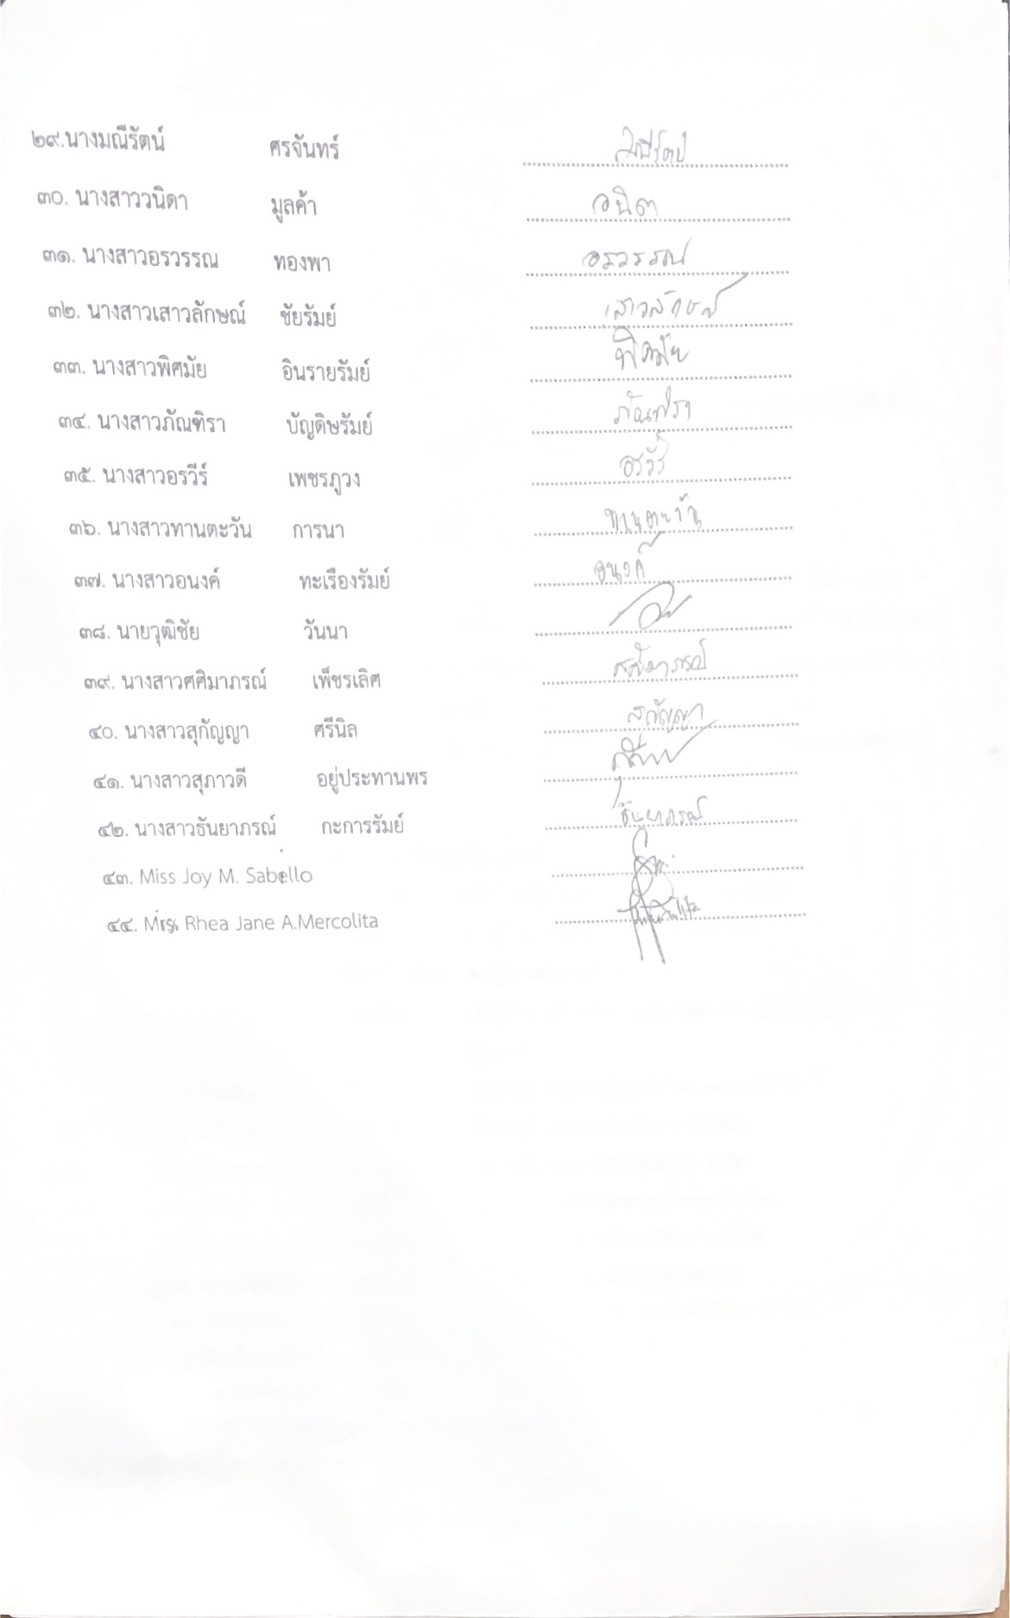 ๒๙.นางมณีรัตน์ ศรจันทร์ มณีรัตน์
๓๐. นางสาววนิดา มูลค้า วนิดา
๓๑. นางสาวอรวรรณ ทองพา อรวรรณ
๓๒. นางสาวเสาวลักษณ์ ชัยรัมย์ เสาวลักษณ์
๓๓. นางสาวพิศมัย อินรายรัมย์ พิศมัย
๓๔. นางสาวภัณฑิรา บัญดิษรัมย์ ภัณฑิรา
๓๕. นางสาวอรวีร์ เพชรภูวง อรวีร์
๓๖. นางสาวทานตะวัน การนา ทานตะวัน
๓๗. นางสาวอนงค์ ทะเรืองรัมย์ อนงค์
๓๘. นายวุฒิชัย วันนา
๓๙. นางสาวศศิมาภรณ์ เพ็ชรเลิศ ศศิมาภรณ์
๔๐. นางสาวสุกัญญา ศรีนิล สุกัญญา
๔๑. นางสาวสุภาวดี อยู่ประทานพร
๔๒. นางสาวธันยาภรณ์ กะการรัมย์ ธันยาภรณ์
๔๓. Miss Joy M. Sabello
๔๔. Mrs. Rhea Jane A.Mercolita